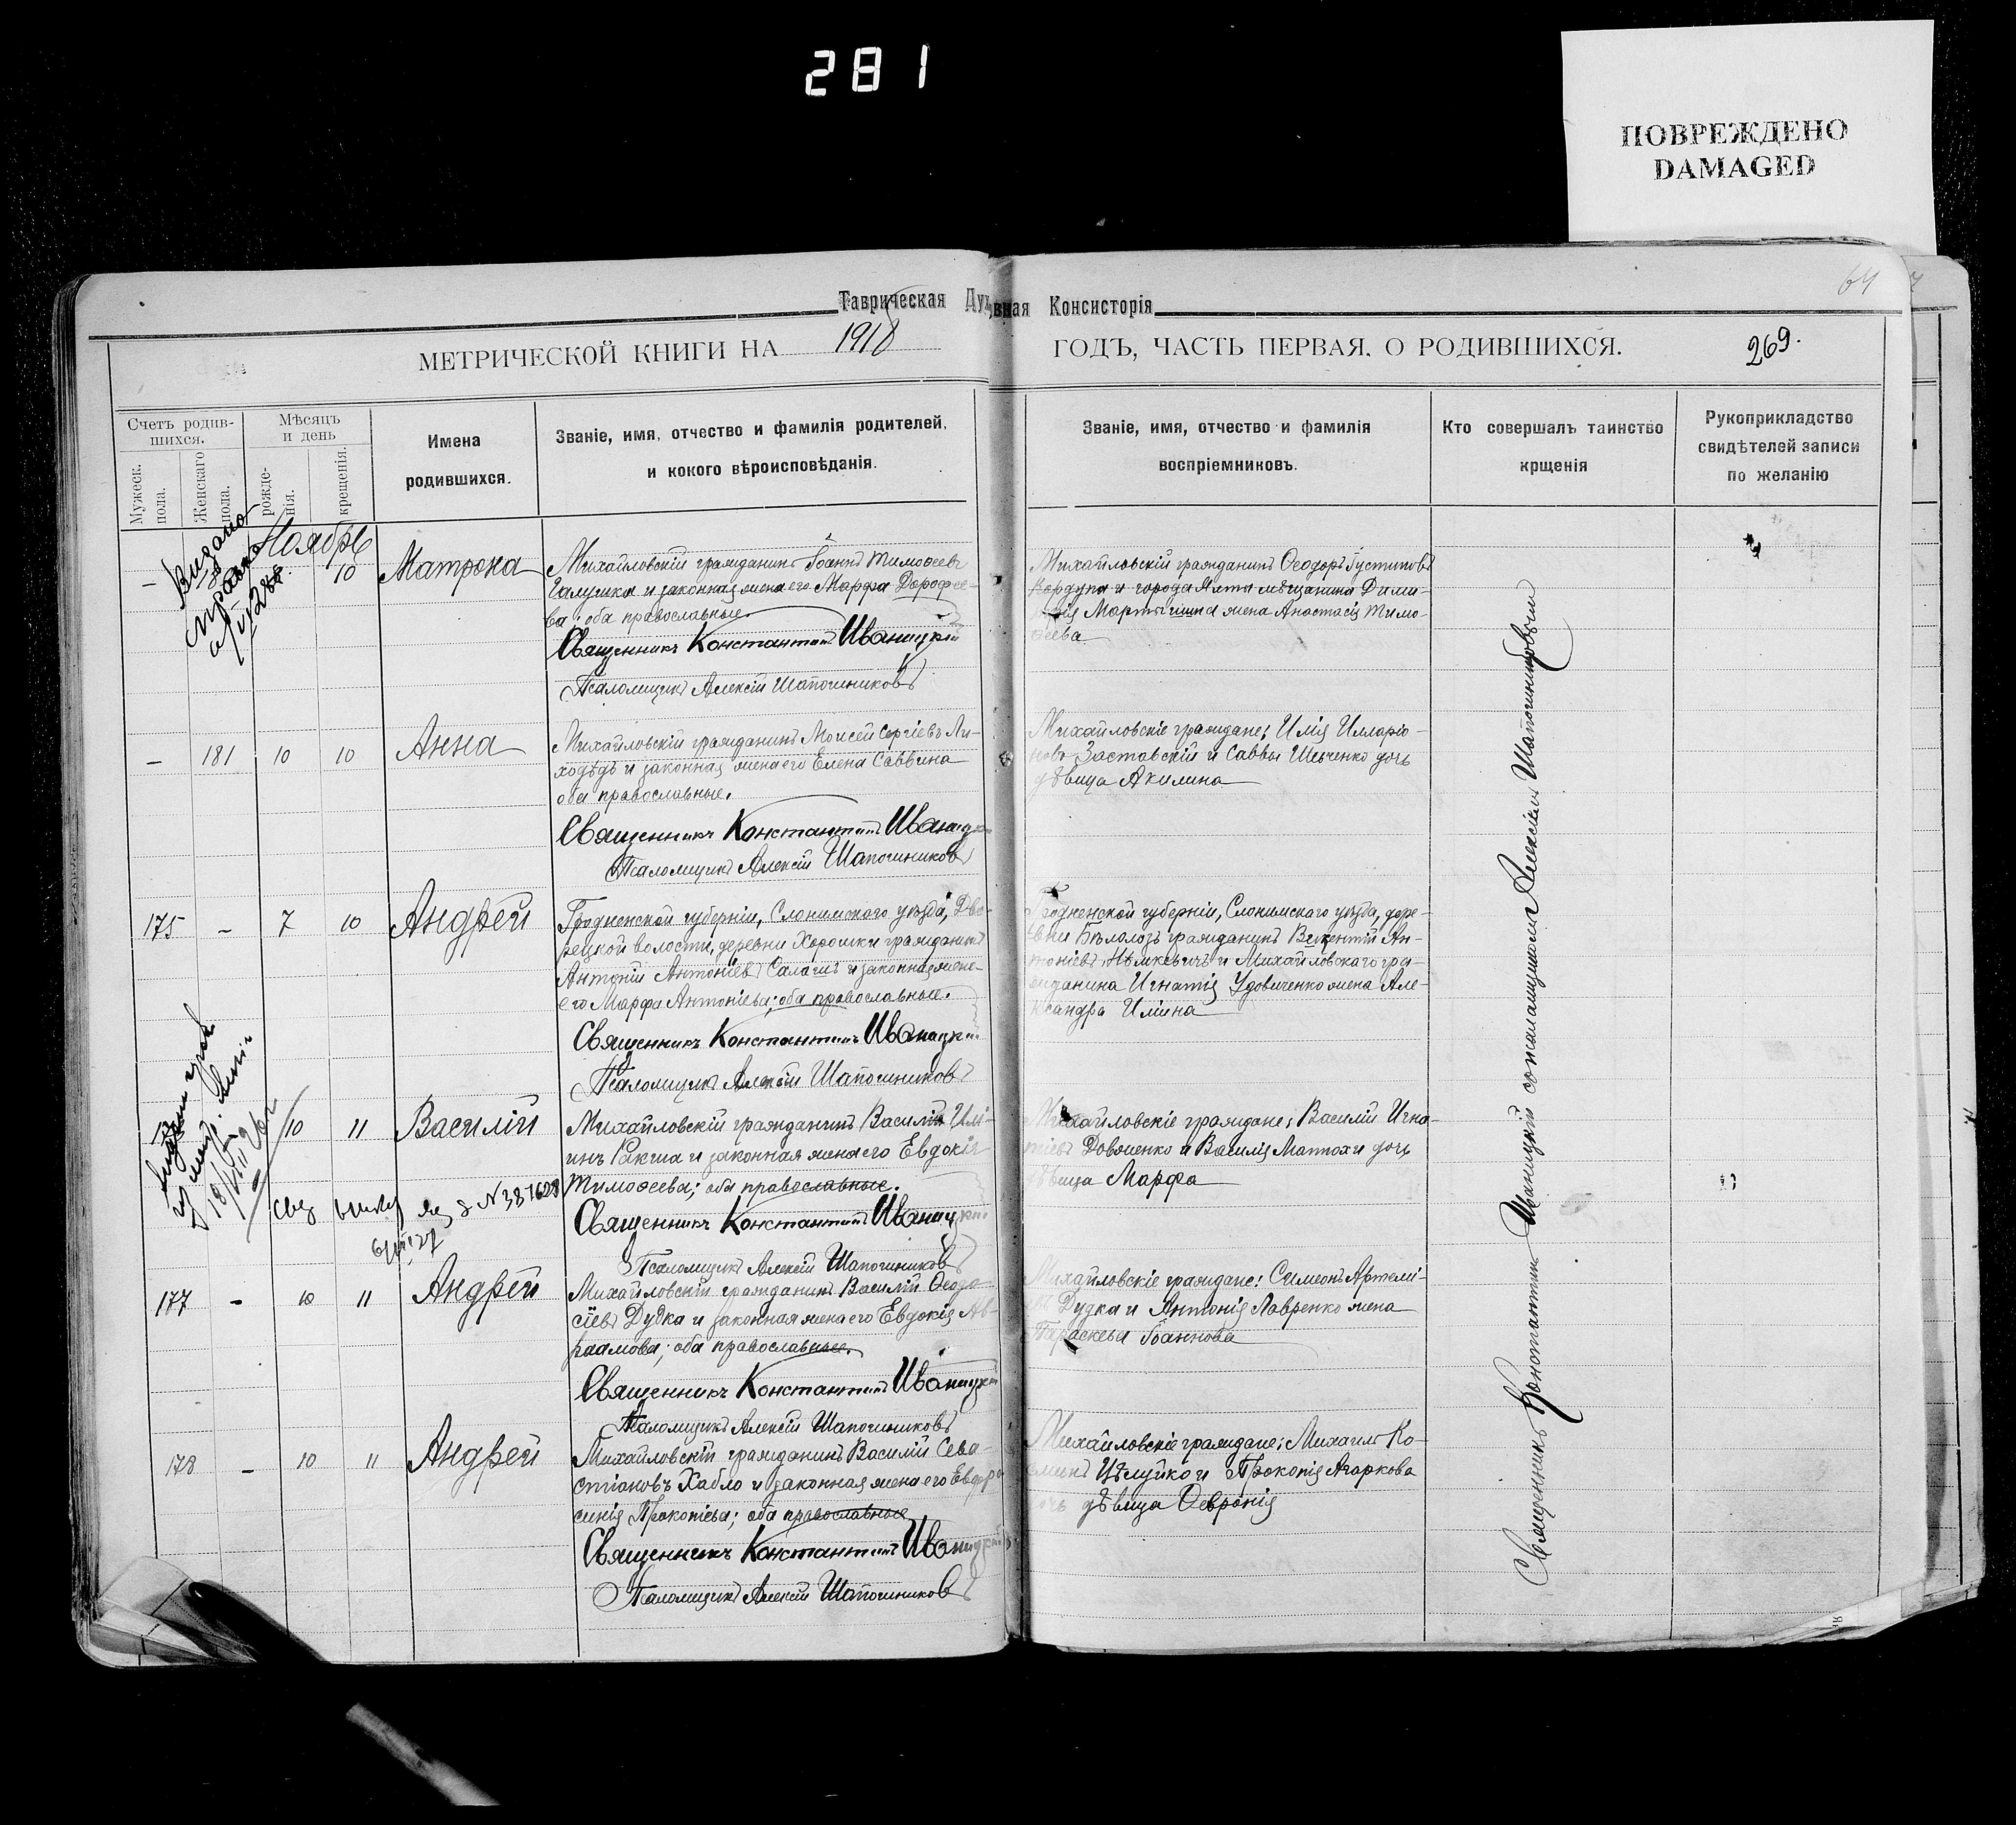 281
ПОВРЕЖДЕНО
DAMAGED
64
Таврическая Духовная Консисторія
МЕТРИЧЕСКОЙ КНИГИ НА 1918 ГОДЪ, ЧАСТЬ ПЕРВАЯ, О РОДИВШИХСЯ.
269.
Счетъ родив-
шихся.
Мужеск.
пола.
Женскаго
пола.
Мѣсяцъ
и день
рожде-
нія.
крещенія.
Имена
родившихся.
Званіе, имя, отчество и фамилія родителей,
и кокого вѣроисповѣданія.
Званіе, имя, отчество и фамилія
воспріемниковъ.
Кто совершалъ таинство
крщенія
Рукоприкладство
свидѣтелей записи
по желанію
Ноябрь
Видано
10
Матрона
Михайловскій гражданинъ Іоаннъ Тимоѳеевъ
Галушка и законная жена его Марфа Дорофее-
ва; оба православные.
Священникъ Константинъ Иваницкій
Псаломщикъ Алексій Шапошниковъ
Михайловскій гражданинъ Ѳеодоръ Іустиновъ
Кордупа и города Ялта мѣщанина Дими-
трія Мартышина жена Анастасія Тимо-
ѳеева
— 181 10 10
Анна
Михайловскій гражданинъ Моисей Сергіевъ Ли-
ходѣдъ и законная жена его Елена Саввина
оба православные.
Священникъ Константинъ Иваницкій
Псаломщикъ Алексій Шапошниковъ
Михайловскіе граждане; Илія Илларіо-
новъ Заставскій и Саввы Шевченко дочь
дѣвица Акилина
175 — 7 10
Андрей
Гродненской губерніи, Слонимского уѣзда, Дво-
рецкой волости, деревни Хорошки гражданинъ
Антоній Антоніевъ Салогиъ и законная жена
его Марфа Антоніева; оба православные.
Священникъ Константинъ Иваницкій
Псаломщикъ Алексій Шапошниковъ
Гродненской губерніи, Слонимского уѣзда, дере-
вни Бѣлолозъ гражданинъ Викентій Ан-
тоніевъ Нѣмкевичъ и Михайловскаго гра-
жданина Игнатія Удовиченко жена Але-
ксандра Иліина
10 11
Василій
Михайловскій гражданинъ Василій Илі-
инъ Ракша и законная жена его Евдокія
Тимоѳеева; оба православные.
Священникъ Константинъ Иваницкій
Псаломщикъ Алексій Шапошниковъ
Михайловскіе граждане; Василій Игна-
тіевъ Довженко и Василія Маттохи дочь
дѣвица Марфа
177 — 10 11
Андрей
Михайловскій гражданинъ Василій Ѳеодо-
сіевъ Дудка и законная жена его Евдокія Ав-
раамова; оба православные.
Священникъ Константинъ Иваницкій
Псаломщикъ Алексій Шапошниковъ
Михайловскіе граждане: Симеонъ Артемі-
Дудка и Антонія Лавренко жена
Параскева Іоаннова
178 — 10 11
Андрей
Михайловскій гражданинъ Василій Сева-
стіановъ Хабло и законная жена его Евфро
синія Прокопіева; оба православные
Священникъ Константинъ Иваницкій
Псаломщикъ Алексій Шапошниковъ
Михайловскіе граждане; Михаилъ Ко-
Цѣлуйко и Прокопія Агаркова
дѣвица Ѳевронія
Священникъ Константинъ Иваницкій со псаломщикомъ Алексіемъ Шапошниковымъ